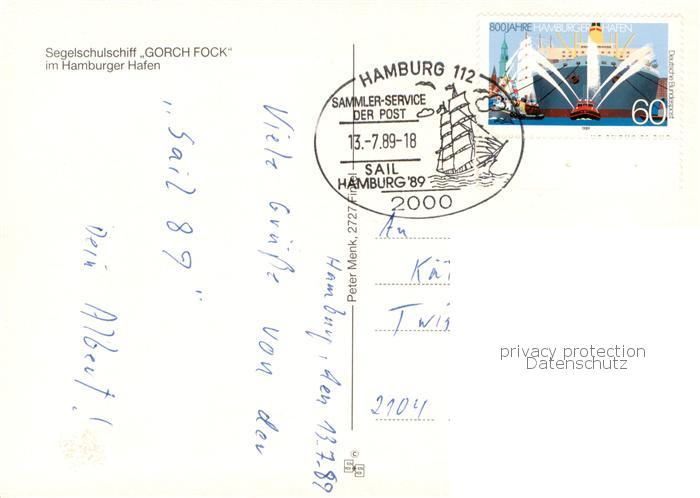 Segelschulschiff „GORCH FOCK“
im Hamburger Hafen
800 JAHRE HAMBURGER HAFEN
Deutsche Bundespost
60
1989
HAMBURG 112
SAMMLER-SERVICE
DER POST
13.-7.89-18
SAIL
HAMBURG '89
2000
Hamburg, den 13.7.89
Viele Grüße von der
„Sail 89“
Dein Albert!
Peter Menk, 2727
An
Kä
Twi
2104
privacy protection
Datenschutz